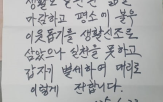 생활로 실천한 삶
자각하고 평소에 불우
이웃돕기를 생활신조로
삼았으나 실천을 못하고
갑자기 별세하여 대리로
이렇게 전합니다.